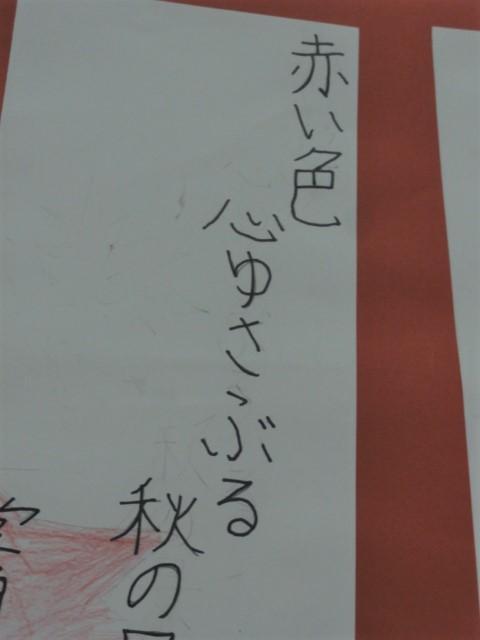 赤い色
心ゆさぶる
秋の